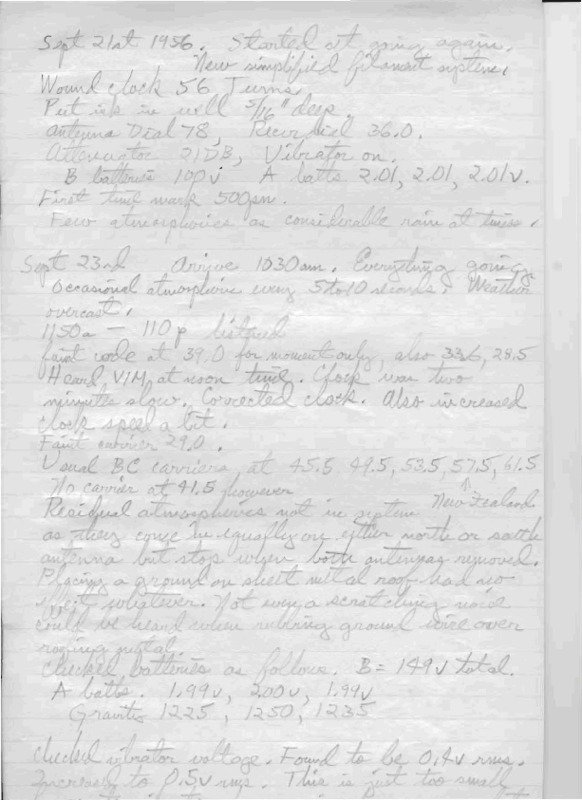 Sept 21st 1956. Started it going again.
New simplified filament system.
Wound clock 56 Turns.
Put ink in well 5/16" deep.
Antenna Dial 78, Recv dial 36.0.
Attenuator 21DB, Vibrator on.
B batteries 100v A batts 2.01, 2.01, 2.01v.
First time mark 500pm.
Few atmospherics as considerable rain at times.
Sept 23rd Arrive 1030am. Everything going.
Occasional atmospheric every 5 to 10 seconds. Weather
overcast.
1150a — 110p listened
faint code at 39.0 for moment only, also 33.6, 28.5
Heard VIM at noon time. Clock was two
minutes slow. Corrected clock. Also increased
clock speed a bit.
Faint carrier 29.0.
Usual BC carriers at 45.5, 49.5, 53.5, 57.5, 61.5
No carrier at 41.5 however
New Zealand
Residual atmospherics not in system
as they come in equally on either north or south
antenna but stop when both antennas removed.
Placing a ground on sheet metal roof had no
effect whatever. Not even a scratching noise
could be heard when rubbing ground wire over
roofing metal.
Checked batteries as follows. B = 149v total.
A batts. 1.99v, 2.00v, 1.99v
Gravities 1225, 1250, 1235
Checked vibrator voltage. Found to be 0.4v rms.
Increased to 0.5v rms. This is just too small